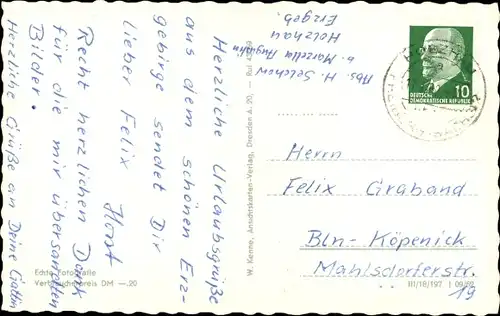 Herzliche Urlaubsgrüße
aus dem schönen Erz-
gebirge sendet Dir
lieber Felix Horst
Recht herzlichen Dank
für die mir übersandten
Bilder.
Herzliche Grüße an Deine Gattin
Echte Fotografie
Verbraucherpreis DM —.20
W. Kenne, Ansichtskarten-Verlag, Dresden A 20, - Ruf
Abs. H. Selchow
b. Marzella
Holzhau
Erzgeb.
DEUTSCHE
DEMOKRATISCHE REPUBLIK
10
Herrn
Felix Graband
Bln.-Köpenick
Mahlsdorferstr.
19
III/18/197 | 09/62